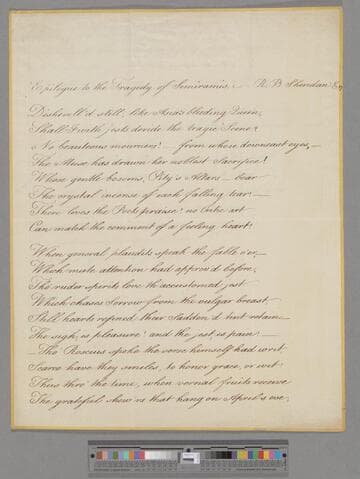 Epilogue to the Tragedy of Semiramis. R. B. Sheridan Esqr
Dishevell'd still, like Asia's bleeding Queen,
Shall I with jests deride the tragic Scene?
No beauteous mourners! — from whose downcast eyes, —
The Muse has drawn her noblest Sacrifice!
Whose gentle bosoms, Pity's Altars — bear
The crystal incense of each falling tear! —
There lives the Poets praise! no Critic art
Can match the comment of a feeling heart!
When general plaudits speak the fable o'er,
Which mute attention had approv'd before,
Tho' ruder spirits love th' accustomed jest
Which chases Sorrow from the vulgar breast,
Still hearts refined their Sadden'd tint retain
The sigh is pleasure! and the jest is pain! —
Scarce have they smiles, to honor grace, or wit
Tho' Roscius spoke the verse himself had writ.
Thus thro' the time, when vernal fruits receive
The grateful show'rs that hang on April's eve,